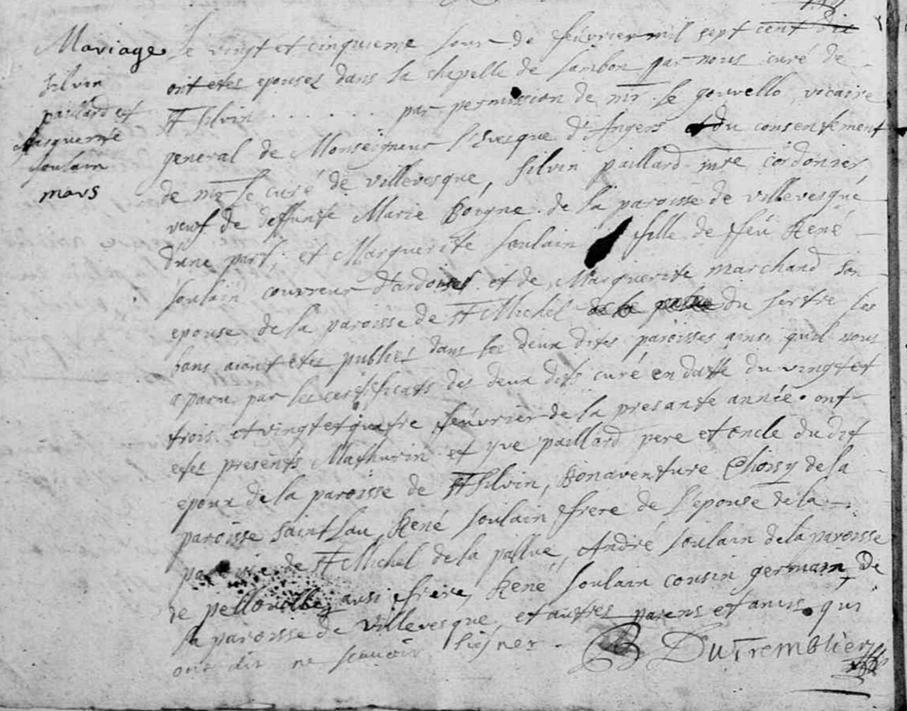 Mariage
Silvin
paillard et
Marguerite
Soulain
mars
Le vingt et cinquieme Jour de feuvrier mil sept cent dix
ont etes epousez dans la chapelle de par nous curé de
St Silvin . . . . . . par permission de mr. le gouvello, vicaire
general de Monseigneur l'Evesque d'Angers et du consentement
de mr le curé de villevesque, Silvin paillard mre cordonier
veuf de deffunte Marie de la paroisse de villevesque
d'une part; et Marguerite Soulain fille de feu René
Soulain couvreur d'ardoises et de Marguerite marchand son
epouse de la paroisse de St Michel du tertre les
bans aiant etes publies dans les deux dites paroisses ainsi quil nous
a paru par les certificats des deux dits curé en datte du vingt et
trois et vingt et quatre feuvrier de la presante année. ont
etes presents Mathurin et yve paillard pere et oncle du dit
epoux de la paroisse de St Silvin, Bonaventure Choisy de la
paroisse Saint Lau, René Soulain frere de l'epouse de la
paroisse de St Michel de la pallue, André Soulain de la paroisse
de pellouailles aussi frere, René Soulain cousin germain de
la paroisse de villevesque, et autres parens et amis qui
ont dit ne scavoir signer. Dutremblier